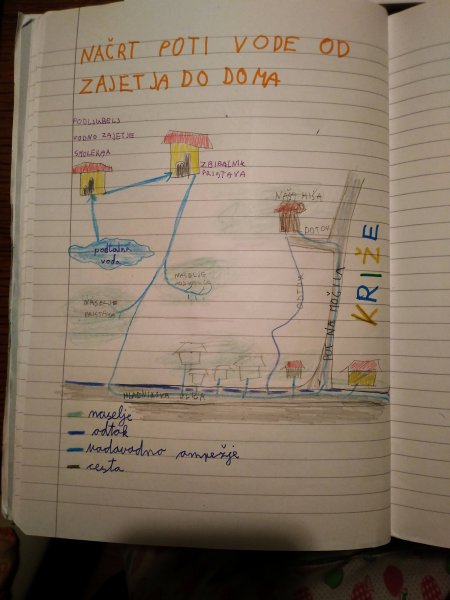 NAČRT POTI VODE OD
ZAJETJA DO DOMA
PODLJUBELJ
VODNO ZAJETJE
ZBIRALNIK
PRISTAVA
NAŠA HIŠA
DOTOK
podtalna
voda
NASELJE
NASELJE
PRISTAVA
ODTOK
POT NA MOČILA
KRIŽE
MLADINSKA ULICA
naselje
odtok
vodovodno omrežje
cesta